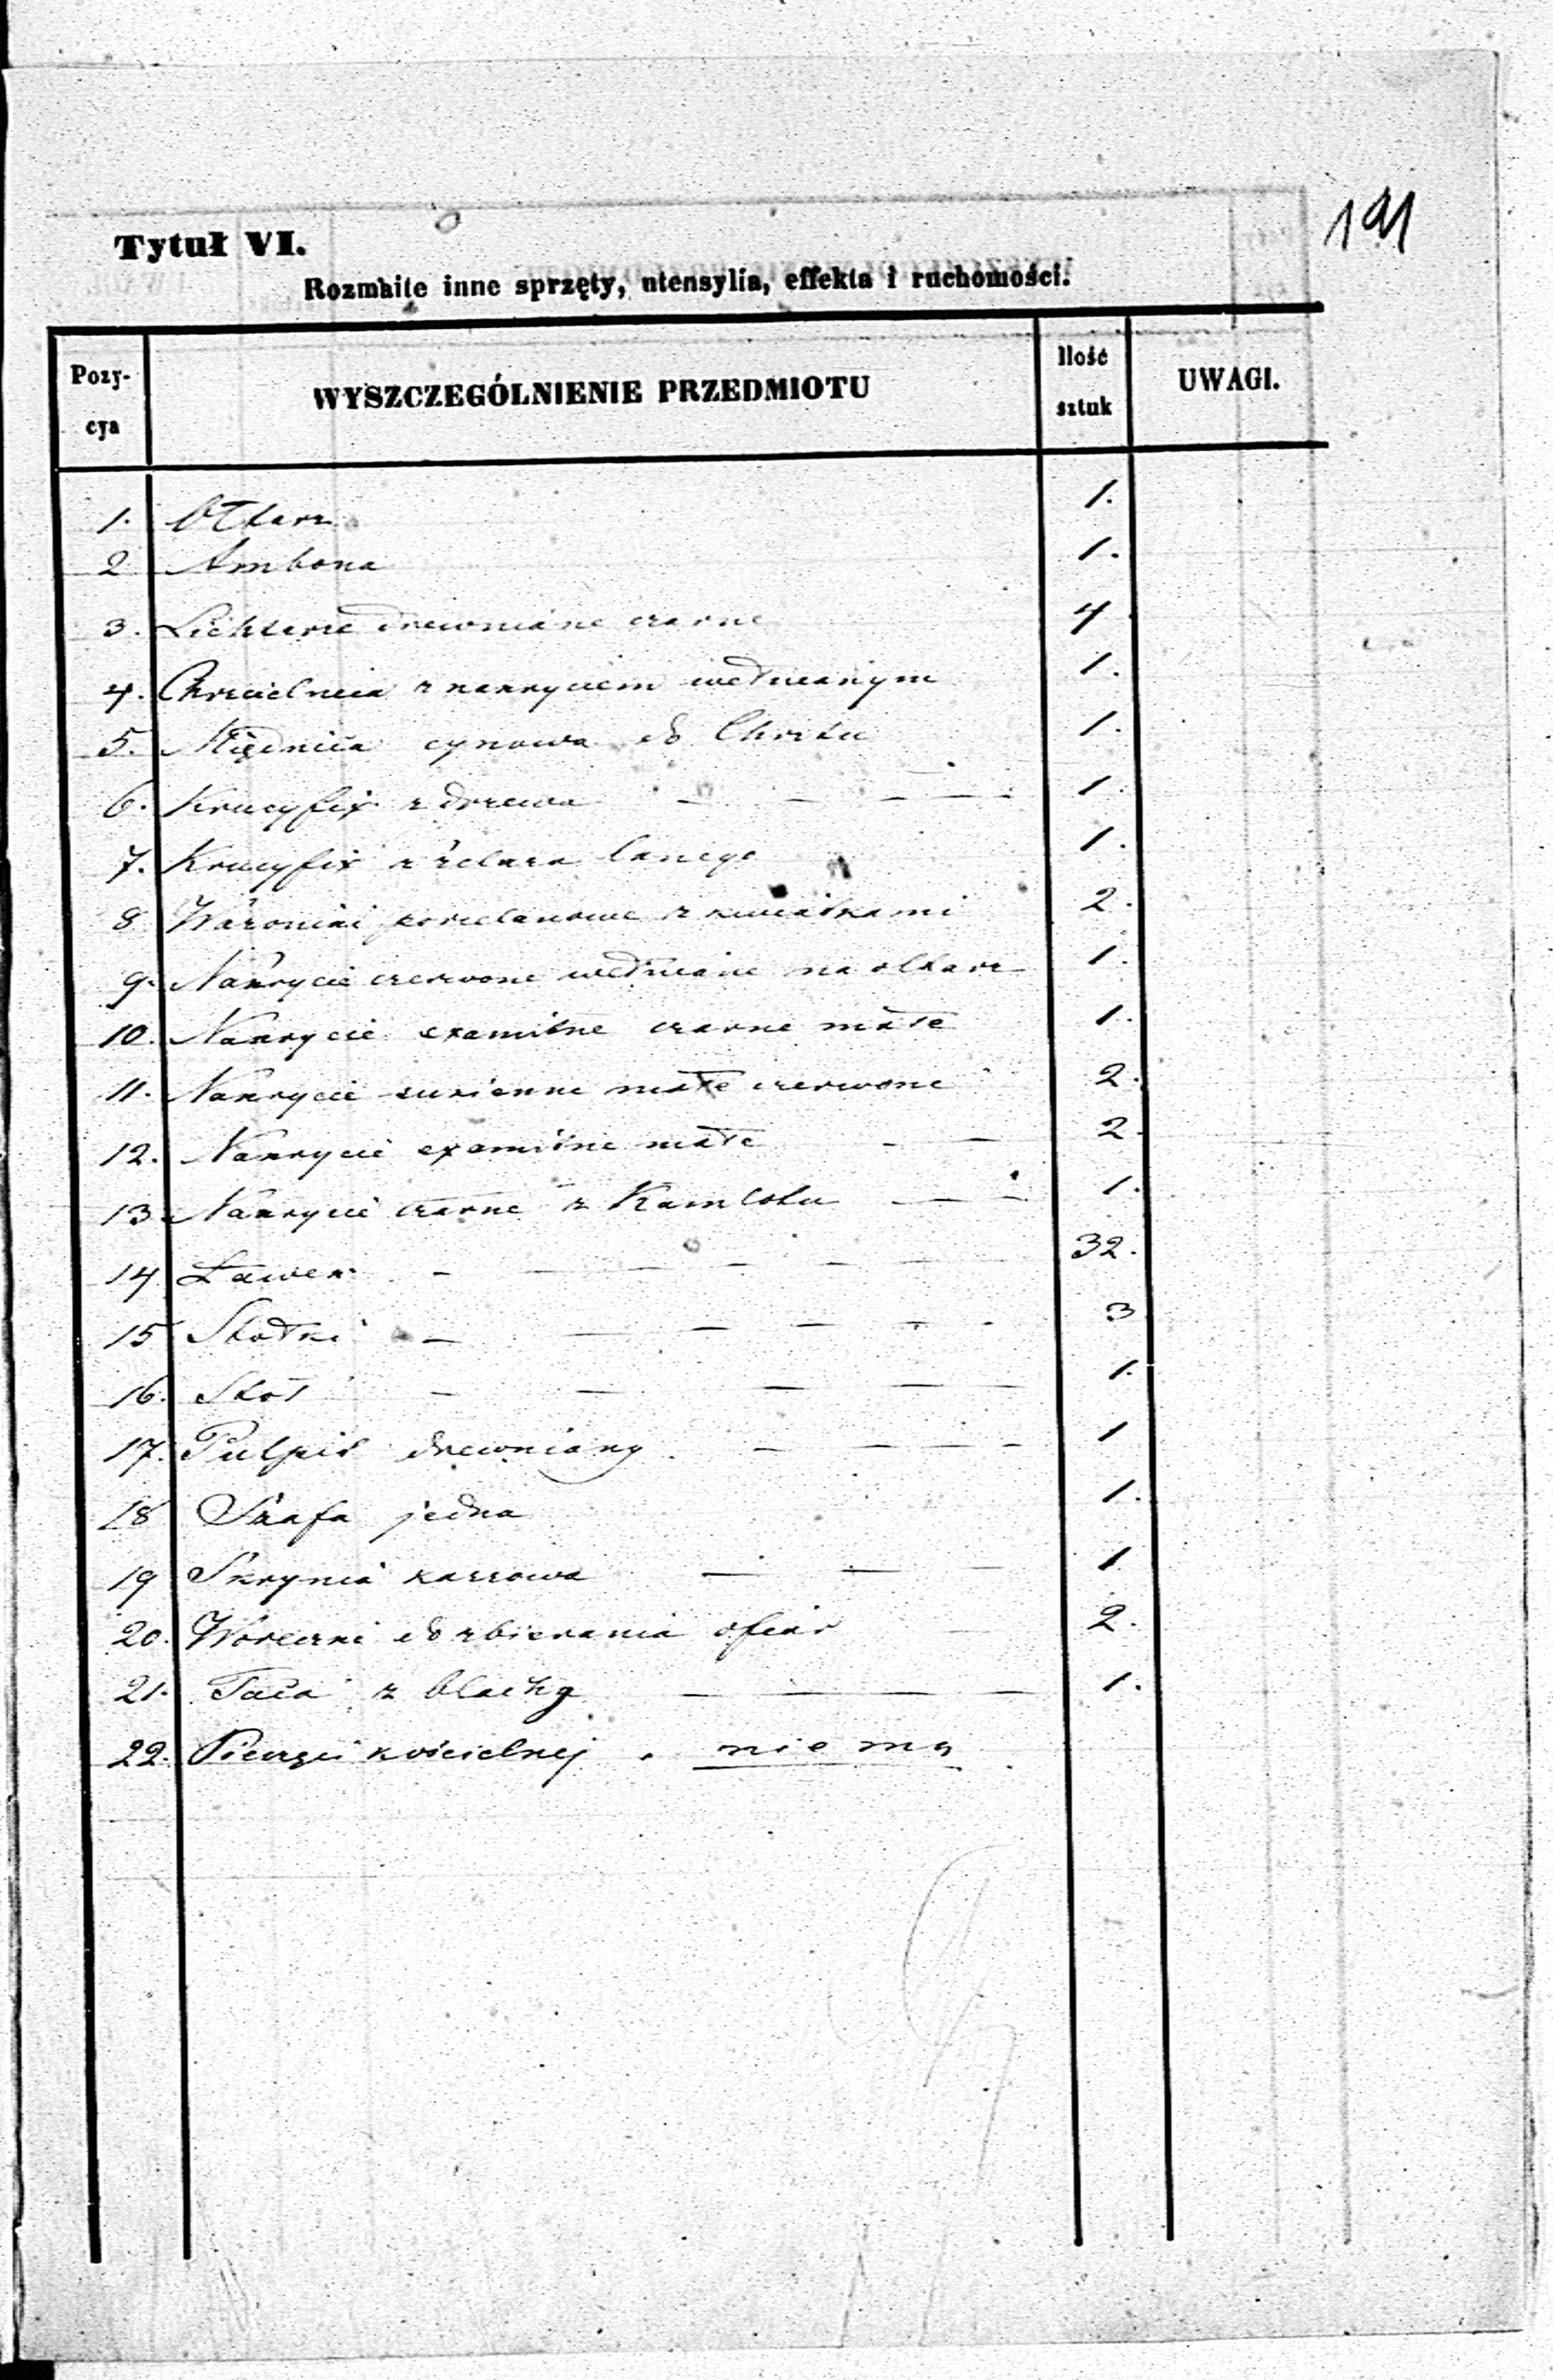 191
Tytuł VI.
Rozmaite inne sprzęty, utensylia, effekta i ruchomości.
Pozy-
cya
WYSZCZEGÓLNIENIE PRZEDMIOTU
Ilość
sztuk
UWAGI.
1. Ołtarz 1.
2 Ambona 1.
3. Lichtarze drewniane czarne 4
4. Chrzcielnica z nakryciem wełnianym 1.
5. Miednica cynowa do Chrztu 1.
6. Krucyfix z drzewa — — — — 1.
7. Krucyfix z żelaza lanego 1.
8 Wazoniki porcelanowe z kwiatkami 2.
9. Nakrycie czerwone wełniane na ołtarz 1.
10. Nakrycie axamitne czarne małe 1.
11. Nakrycie sukienne małe czerwone 2.
12. Nakrycie axamitne małe — — 2.
13 Nakrycie czarne z Kamlotu — — 1.
14 Ławek — — — — — — 32.
15 Stołki — — — — — 3
16. Stół — — — — — 1.
17. Pulpit drewniany — — — 1
18 Szafa jedna 1.
19 Skrynia kassowa — — — 1
20. Woreczki do zbierania ofiar — 2.
21. Taca z blachy — — — — 1.
22. Pieczęci kościelnej . nie ma .